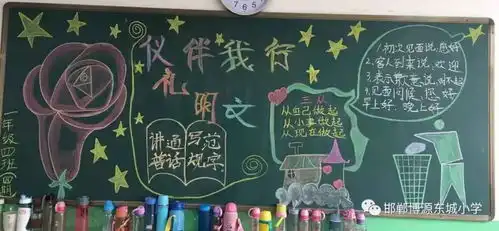 仪伴我行
礼
明文
讲普通话
写规范字
三从
从自己做起
从小事做起
从现在做起
1.初次见面说,您好
2.客人到来说,欢迎
3.表示歉意说,对不起
4.见面问候,您好
早上好,晚上好
一年级
班
邯郸博源东城小学